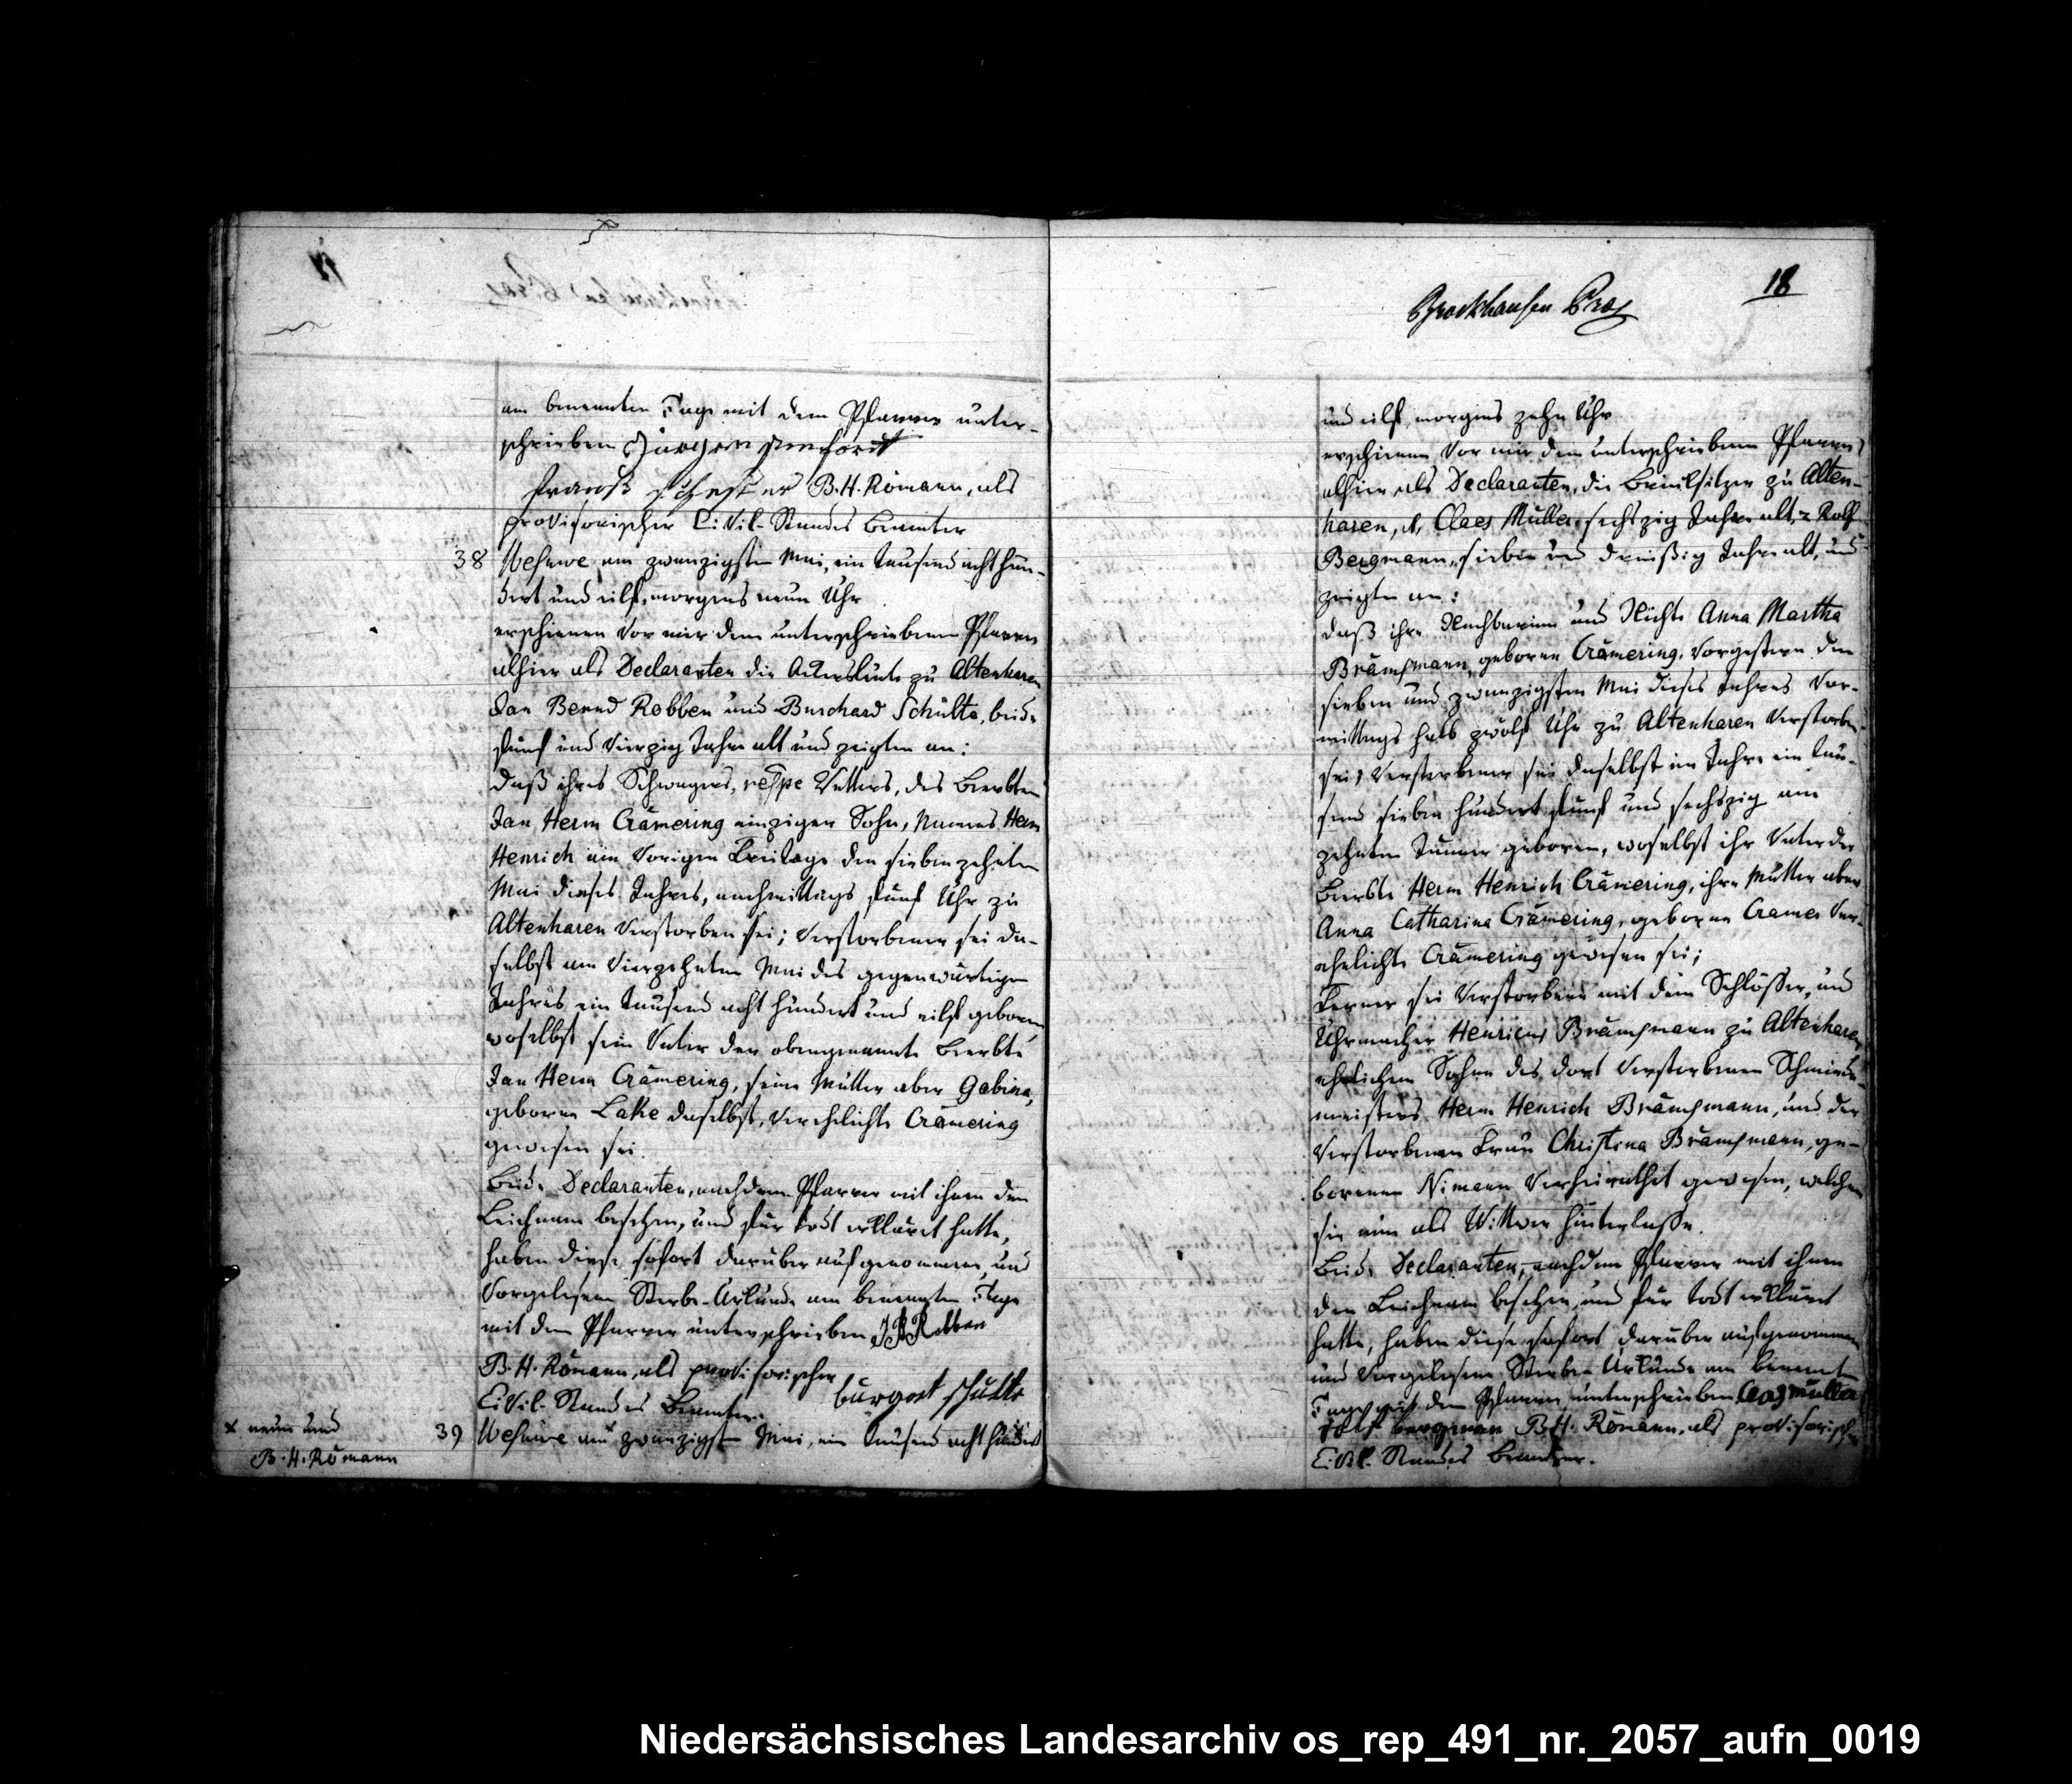 am benannten Tage mit dem Pfarrer unter-
schrieben Jürgen
B. H. Römann, als
provisorischer Civil-Standes Beamter
38 Wesuwe am zwanzigsten Mai, ein tausend acht hun-
dert und eilf, morgens neun Uhr
erschienen vor mir dem unterschriebenen Pfarrer
alhier als Declaranten die Ackersleute zu Altenharen
Jan Bernd Robben und Burchard Schulte, beide
fünf und vierzig Jahre alt und zeigten an:
daß ihres Schwagers, respe Vetters, des Beerbten
Jan Herm Crämering einzigen Sohn, Namens Herm
Henrich am vorigen Freitage den siebenzehnten
Mai dieses Jahres, nachmittags fünf Uhr zu
Altenharen verstorben sei; Verstorbener sei da-
selbst am vierzehnten Mai des gegenwärtigen
Jahres ein tausend acht hundert und eilf geboren,
woselbst sein Vater der obengenannte Beerbte
Jan Herm Crämering, seine Mutter aber Gabina,
geboren Lake daselbst, verehelichte Crämering
gewesen sei.
Beide Declaranten, nachdem Pfarrer mit ihnen den
Leichnam besehen, und für todt erklärt hatte,
haben diese sofort darüber aufgenommene, und
vorgelesene Sterbe-Urkunde am benannten Tage
mit dem Pfarrer unterschrieben J B Robben
B. H. Römann, als provisorischer
Civil-Standes Beamter. burgert schulte
x neun und
B. H. Römann
39 Wesuwe am zwanzigsten Mai, ein tausend acht hundert
18
Brockhausen
und eilf, morgens zehn Uhr
erschienen vor mir dem unterschriebenen Pfarrer
alhier als Declaranten, die Brinksitzer zu Alten-
haren, Claes Müller, sechszig Jahre alt, Rolf
Bergmann, sieben und dreißig Jahre alt, und
zeigten an:
daß ihre Nachbarinn und Nichte Anna Martha
Brämsmann, geboren Crämering, vorgestern den
sieben und zwanzigsten Mai dieses Jahres vor-
mittags halb zwölf Uhr zu Altenharen verstorben
sei; Verstorbene sei daselbst im Jahre ein tau-
send sieben hundert fünf und sechszig am
zehnten Jänner geboren, woselbst ihr Vater der
Beerbte Herm Henrich Crämering, ihre Mutter aber
Anna Catharina Crämering, geborne Cramer ver-
ehelichte Crämering gewesen sei;
Ferner sei Verstorbene mit dem Schlösser, und
Uhrmacher Henricus Brämsmann zu Altenharen,
ehelichen Sohne des dort verstorbenen Schmiede-
meisters, Herm Henrich Brämsmann, und der
verstorbenen Frau Christina Brämsmann, ge-
borenen Nimann verheirathet gewesen, welchen
sie nun als Wittwer hinterlasse.
Beide Declaranten, nachdem Pfarrer mit ihnen
den Leichnam besehen, und für todt erklärt
hatte, haben diese sofort darüber aufgenommene
und vorgelesene Sterbe-Urkunde am benannt
Tage mit dem Pfarrer unterschrieben Claas müller
rolf bergman B. H. Römann, als provisorisch
Civil-Standes Beamter.
Niedersächsisches Landesarchiv os_rep_491_nr._2057_aufn_0019